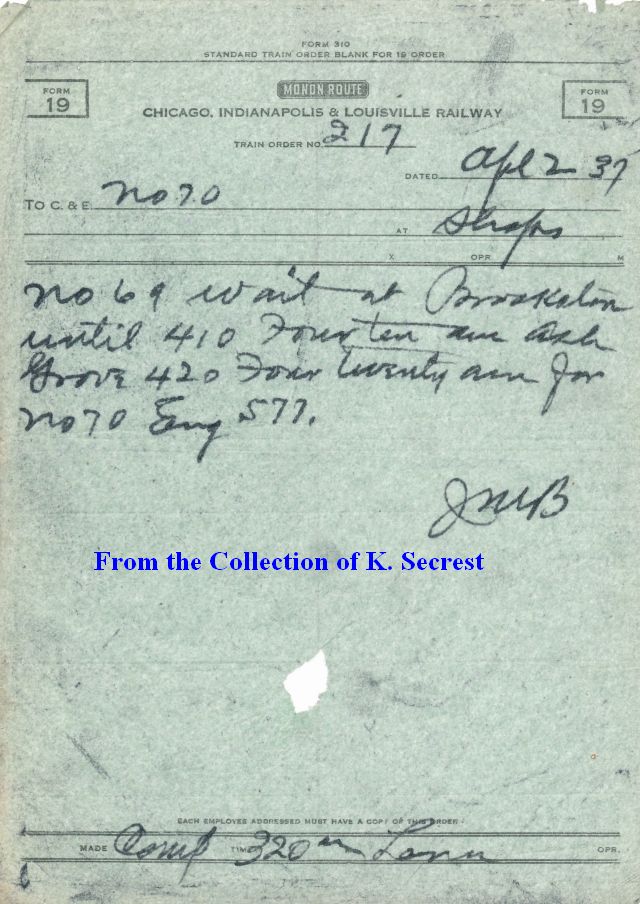 FORM 310
STANDARD TRAIN ORDER BLANK FOR 19 ORDER
FORM 19
MONON ROUTE
FORM 19
CHICAGO, INDIANAPOLIS & LOUISVILLE RAILWAY
TRAIN ORDER NO. 217
DATED Apl 2 37
TO C. & E. No 70
AT Shops
X OPR. M
No 69 wait at Brookston
until 410 Four ten am Ash
Grove 420 Four twenty am for
No 70 Eng 577.
JMB
From the Collection of K. Secrest
EACH EMPLOYE ADDRESSED MUST HAVE A COPY OF THIS ORDER.
MADE Comp TIME 320 am OPR.